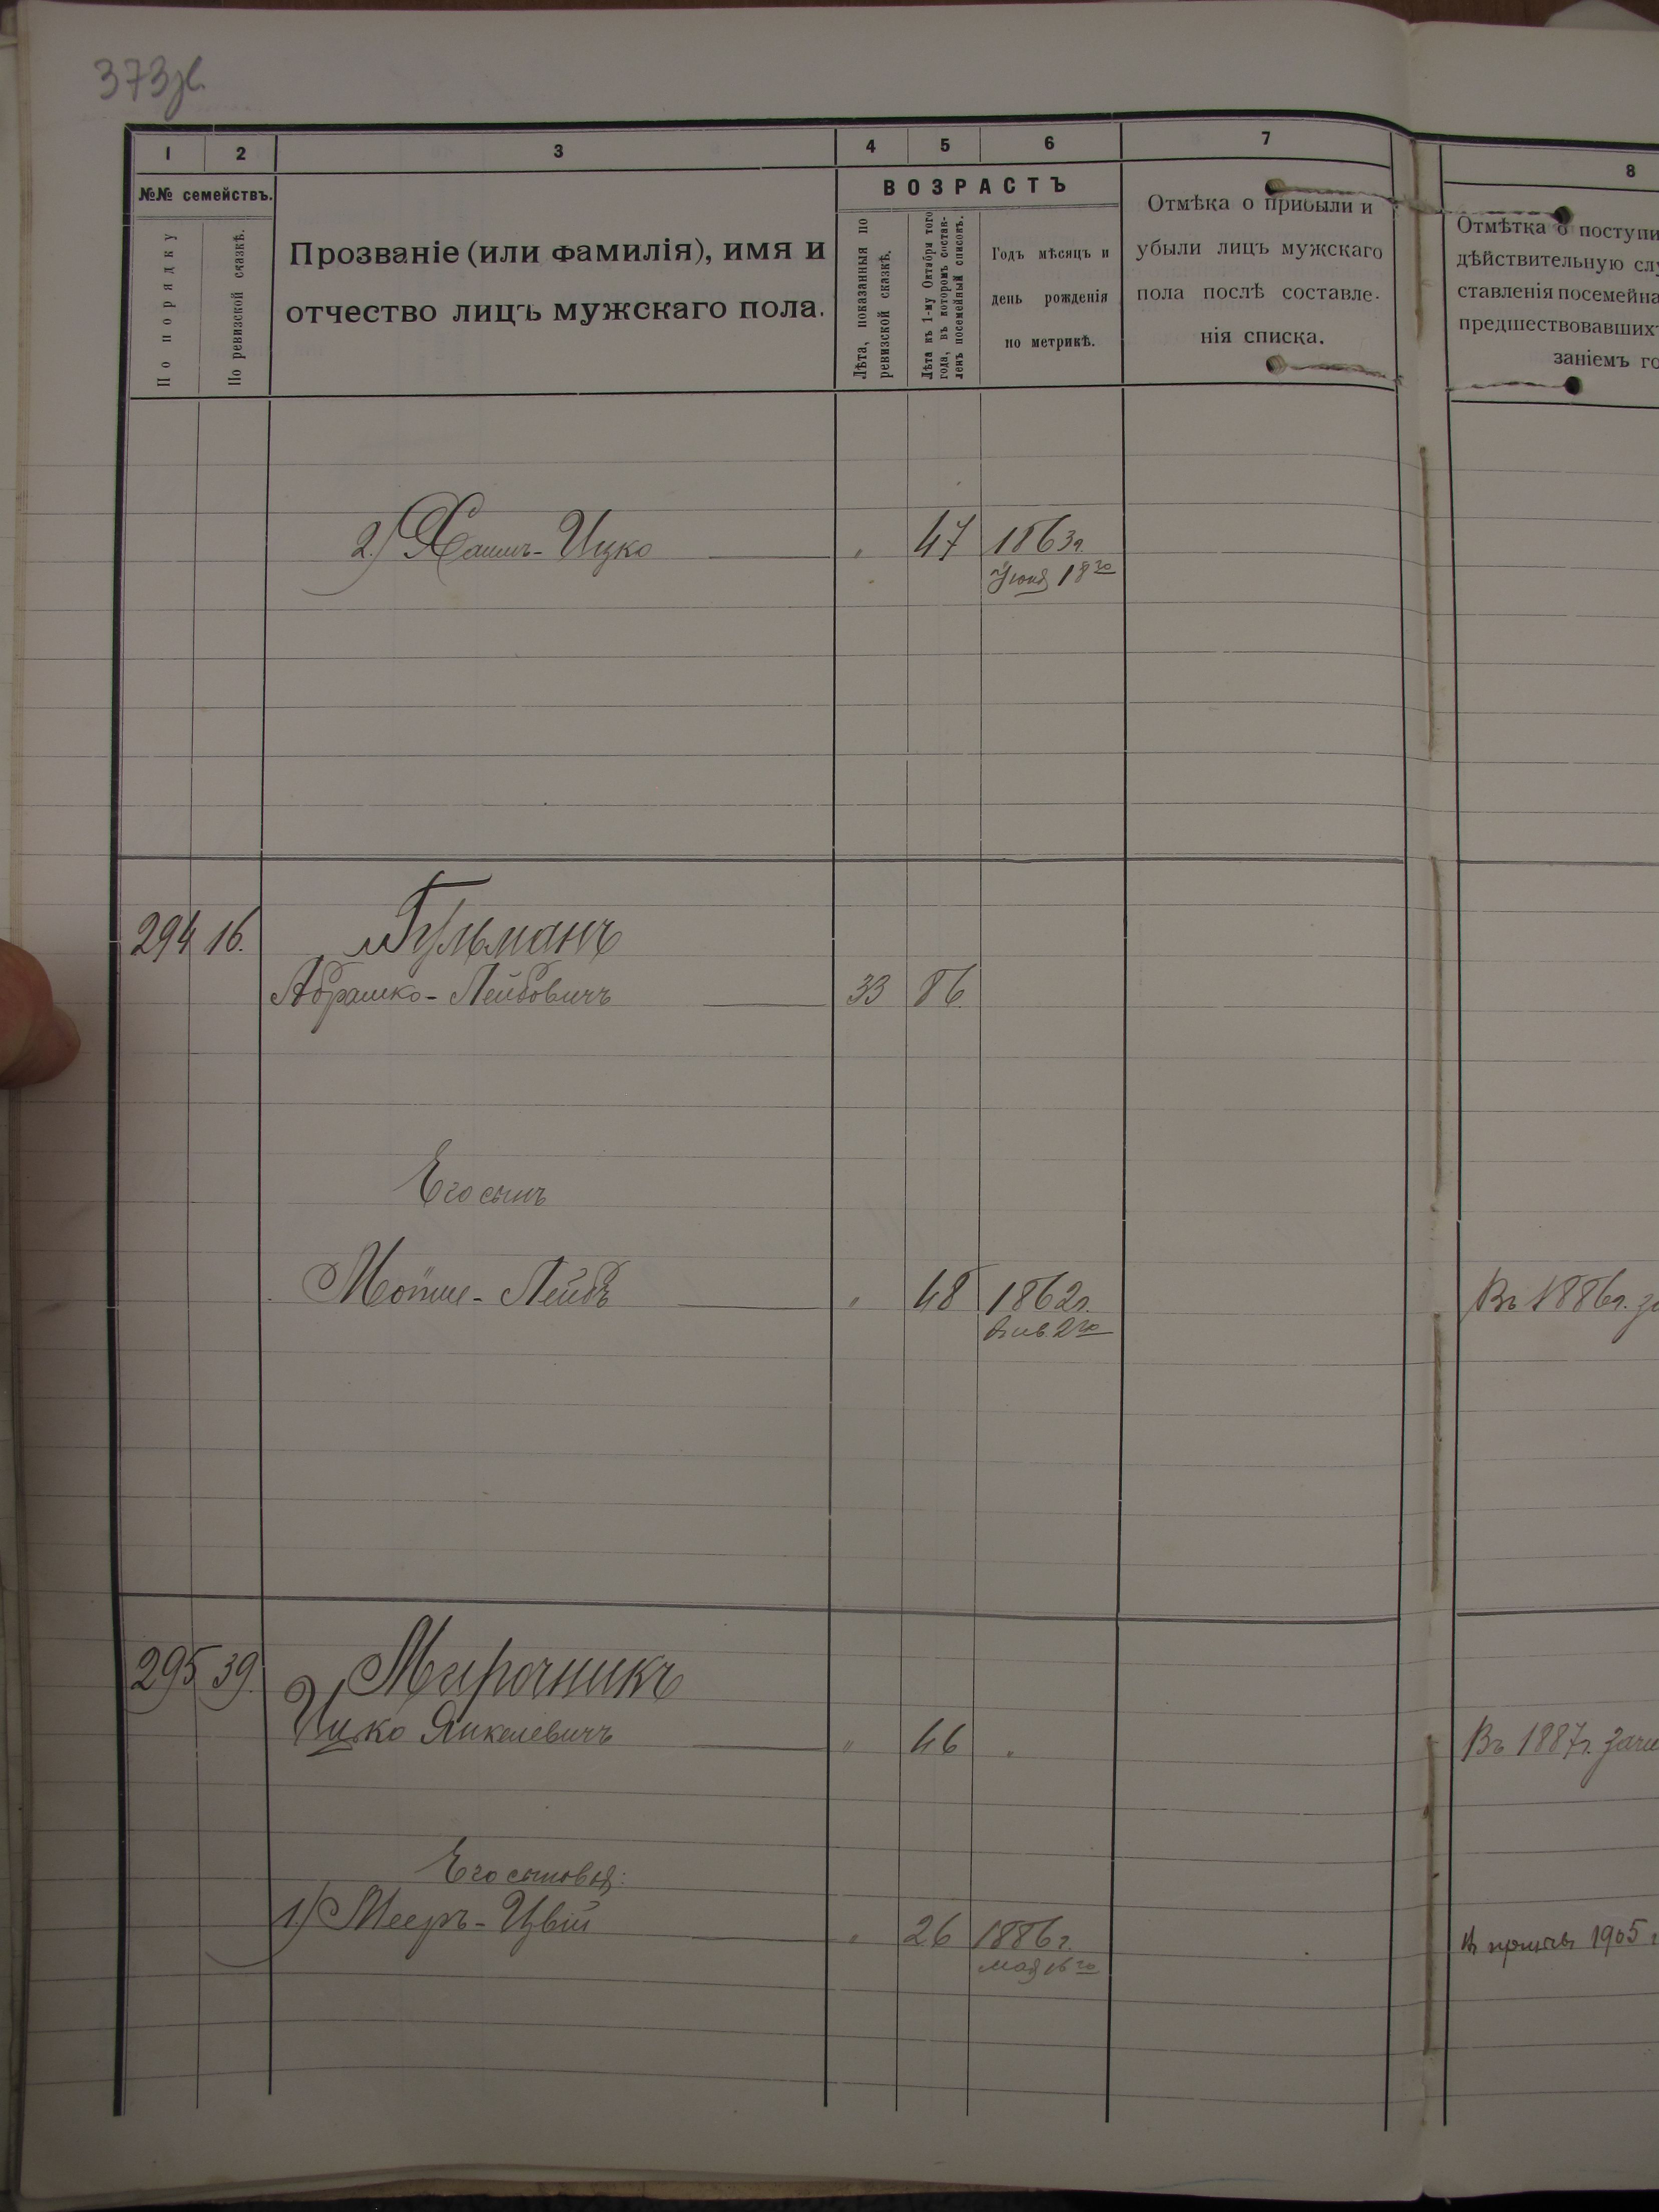 373зв.
1 2 3 4 5 6 7 8
№№ семействъ.
По порядку
По ревизской сказкѣ.
Прозваніе (или фамилія), имя и
отчество лицъ мужскаго пола.
ВОЗРАСТЪ
Лѣта, показанныя по
ревизской сказкѣ.
Лѣта къ 1-му Октября того
года, въ которомъ состав-
ленъ посемейный списокъ.
Годъ мѣсяцъ и
день рожденія
по метрикѣ.
Отмѣка о прибыли и
убыли лицъ мужскаго
пола послѣ составле-
нія списка.
Отмѣтка о поступи
дѣйствительную слу
ставленія посемейна
предшествовавшихъ
заніемъ го
2.) Хаимъ-Ицко — „ 47 1863г.
Іюня 18го
294 16. Гульманъ
Абрашко-Лейбовичъ — 33 86.
Его сынъ
Мошие-Лейбъ — „ 48 1862г.
Янв. 2го
Въ 1886г. за
295 39. Мирочникъ
Ицко Янкелевичъ — „ 46 „
Въ 1887г. зачи
Его сыновья:
1.) Мееръ-Цвій — „ 26 1886г.
мая 16го
1905